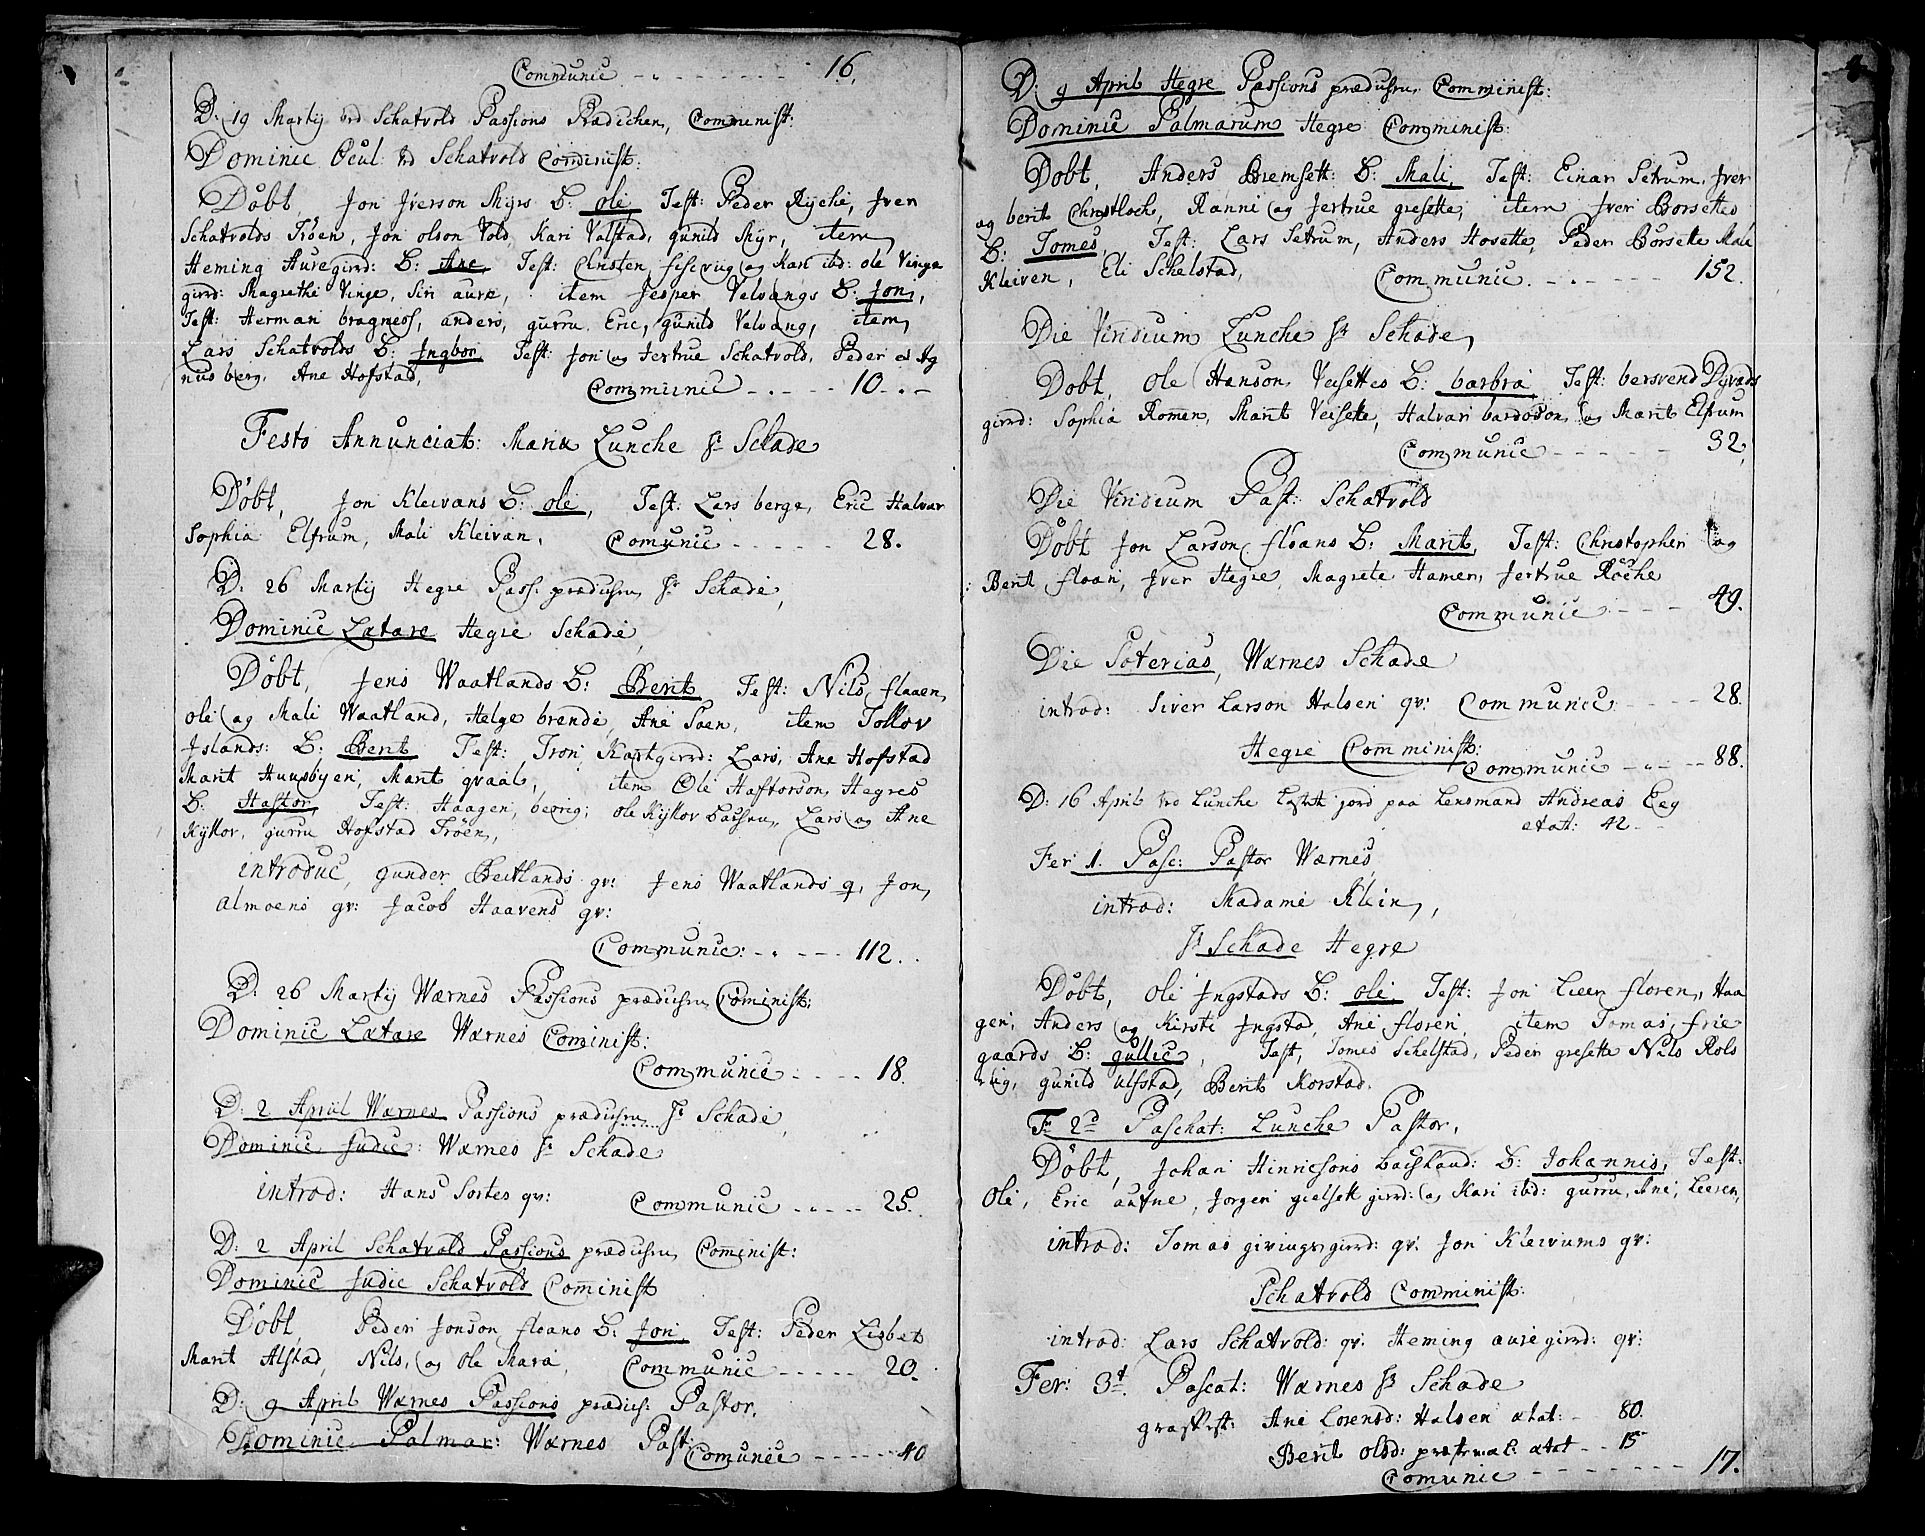 Communic - - - - - - - - 16.
D: 19 Martij Schatvold Passions Prædichen, Comminist:
Dominic Ocul: Schatvold Comminist:
Döbt, Jon Jverson Skyrs B: ole Test: Peder Ryche, Jver
Schatvolds Tröen, Jon olson Vold, Kari Valstad, gunild Skyr, item
Heming Auregirrd: B: Ane, Test: Christen og Kari ibd: ole Vinge
girrd: Magrethe Vinge, Siri aure, item Jesper Velvangs B: Jon,
Test: Herman bragness, anders, gurru, Eric, gunild Velvang, item
Lars Schatvolds B: Jngbor Test: Jon og Jertrue Schatvold, Peder Ag
nus berg, Ane Hofstad, Communic - . - - 10 - . -
Festo Annunciat: Mariæ Lunche Hr Schade
Döbt, Jon Kleivans B: ole, Test: Lars berge, Eric Halvar
Sophia Elfrum, Mali Kleivan, Comunic - - - - 28.
D: 26 Martij Hegre Pass: prædichen Hr Schade,
Dominic Lætare Hegre Schade,
Döbt, Jens Waatlands B: Berit Test: Nils flaaen,
ole og Mali Waatland, Helge brende, Ane Saen, item Tollov
Jslands: B: Berit Test: Tron, Kartgirrd: Lars, Ane Hofstad
Marit Huusbyen, Marit qvaal, item Ole Haftorson Hegres
B: Haftor, Test: Haagen, bevrig, ole Kyllov Lars og Ane
Kyllov, gurru Hofstad Tröen,
introduc, gunder Beitlands qv: Jens Waatlands q, Jon,
Almoens qv: Jacob Haavens qv:
Communic: - . - - - 112.
D: 26 Martij Wærnes Passions prædichen Cominist:
Dominic Lætare Wærnes Cominist:
Communic - - - - 18.
D: 2 April Wærnes Passions prædichen Hr Schade,
Dominic Judic: Wærnes Hr Schade
introd: Hans Sortes qv: Communic - - - - - 25.
D: 2 April Schatvold Passions prædichen Cominist:
Dominic Judic Schatvold Cominist
Döbt, Peder Jonson floans B: Jon, Test: Peder Lisbet
Marit Alstad, Nils, og ole Mara, Communic - - - - - 20.
D: 9 April Wærnes Passions prædich: Pastor.
Dominic Palmar: Wærnes Past: Comunic - - - - - 40
D: 9 April Hegre Passions prædichen Comminist:
Dominic Palmarum Hegre Comminist:
Döbt, Anders Bremsett: B: Mali, Test: Einar Setrum, Jver
og berit Christloch, Ranni og Jertrue gresette, item Jver Borsettes
B: Tomes, Test: Lars Setrum, Anders Hosette, Peder Borsette Mali
Kleiven, Eli Schelstad, Communic - . - - - 152.
Die Viridium Lunche Hr Schade,
Döbt, ole Hanson Veisettes B: barbra Test: bersvend Dyvads
girrd: Sophia Romen, Marit Veisette, Halvar bardoson, og Marit Elfrum
Communic - - - - - - 32,
Die Viridium Past: Schatvold
Döbt Jon Larson floans B: Marit, Test: Christopher og
Berit floan, Jver Hegre, Magrete Hamer, Jertrue Röche
Communic - - - 49.
Die Soterias, Wærnes Schade
introd: Siver Larson Halsen qv: Communic - - - - 28.
Hegre Comminist:
Communic - - - - 88.
D: 16 April Lunche jord paa Lensmand Andreas Eeg
etat: 42 -
Fer: 1. Pasc: Pastor Wærnes,
introd: Madame Klein,
Hr Schade Hegre
Döbt, ole Jngstads B: ole, Test: Jon Lieen floren, Haa
gen, Anders og Kirsti Jngstad, Ane floren, item Tomas frie
gaards B: gullic, Test, Tomes Schelstad, Peder gresette Nils Rols
rüg, gunild Ulfstad, Berit Korstad.
Fr 2d Paschat: Lunche Pastor,
Döbt, Johan Hinricsons B: Johannis, Test:
Ole, Eric autne, Jorgen gielsett girrd: og Kari ibd: gurru, Ane, Leeren,
introd: Tomas givingsgirrd: qv: Jon Kleivums qv:
Schatvold Comminist:
introd: Lars Schatvold: qv: Heming auregirrd: qv:
Fer: 3t. Pascat: Wærnes Hr Schade
graskst: Ane Lorensd: Halsen ætat: - 80.
Berit olsd: ætat - - 15
Comunic - - - - - - - - 17.